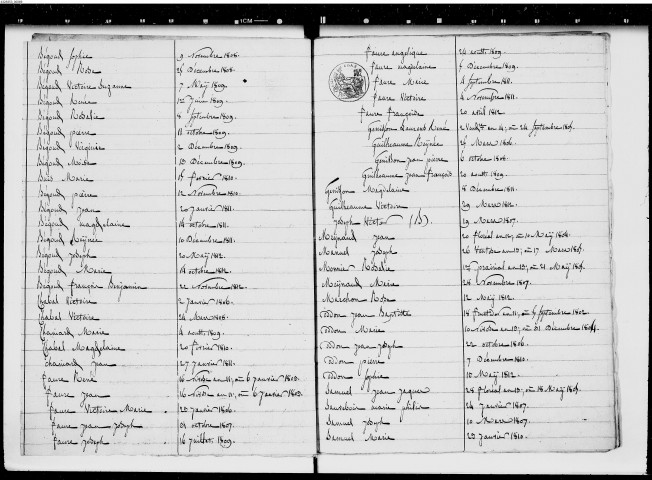 Bégoud Sophie 9 Novembre 1808.
Bégoud Rose 25 Décembre 1808.
Bégoud Victoire Suzanne 7 Maÿ 1809.
Bégoud 12 Juin 1809.
Bégoud Rosalie 8 Septembre 1809.
Bégoud pierre 11 octobre 1809.
Bégoud Virginie 2 Décembre 1809.
Bégoud 10 Décembre 1809.
Marie 15 février 1810.
Bégoud pierre 12 Novembre 1810.
Bégoud Jean 20 Janvier 1811.
Bégoud magdelaine 14 octobre 1811.
Bégoud 10 Décembre 1811.
Bégoud Joseph 20 Maÿ 1812.
Bégoud Marie 14 octobre 1812.
Bégoud françois Benjamin 22 Novembre 1812.
Chabal Victoire 2 Janvier 1806.
Chabal Victoire 24 Mars 1808.
Chainiard Marie 4 aoutt 1809.
Chabal Magdelaine 20 février 1810.
Chainiard Jean 27 Janvier 1811.
Faure René 16 Nivôse an 11, ou 6 Janvier 1803.
Faure Jean 16 Nivôse an 11, ou 6 Janvier 1803.
Faure Victoire Marie 23 Janvier 1806.
Faure Jean Joseph 01 octobre 1807.
Faure Joseph 16 Juillet 1809.
faure angelique 24 aoutt 1809.
faure magdelaine 5 Décembre 1809.
faure Marie 4 Septembre 1811.
faure Victoire 4 Novembre 1811.
faure françoise 20 avril 1812.
Genisson Laurent René 2 Vend.re an 14, ou 24 Septembre 1805.
Guilheaume 25 Mars 1806.
Genisson Jean pierre 6 octobre 1806.
Guilheaume Jean françois 20 aoutt 1809.
Genisson Magdelaine 8 Décembre 1811.
Guilheaume Victoire 29 Mars 1812.
Joseph Victor (D). 19 Mars 1807.
Meÿnard Jean 20 floréal an 12, ou 10 Maÿ 1804.
Manuel Joseph 26 Ventôse an 13, ou 17 Mars 1805.
Monnier Rosalie
Meÿnard Marie 28 Novembre 1807.
Marechon Rose 12 Maÿ 1812.
oddon Jean Baptiste 18 fructidor an 10, ou 5 Septembre 1802.
oddon Marie 10 Nivôse an 13, ou 31 Décembre 1804.
oddon Jean Joseph 22 octobre 1806.
oddon pierre 7 Décembre 1810.
oddon Sophie 10 Maÿ 1812.
Samuel Jean Jaques 28 floréal an 13, ou 18 Maÿ 1805.
marie 24 Janvier 1807.
Samuel Joseph 10 Mars 1807.
Samuel Marie 23 Janvier 1810.